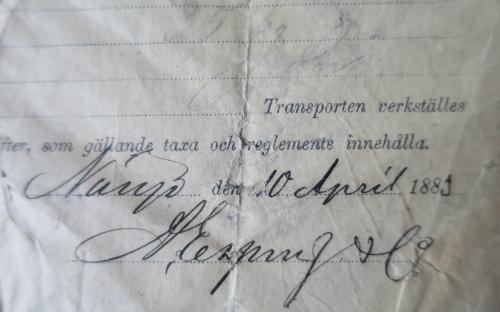 Transporten verkställes
fter, som gällande taxa och reglemente innehålla.
den 10 April 1883
& Co